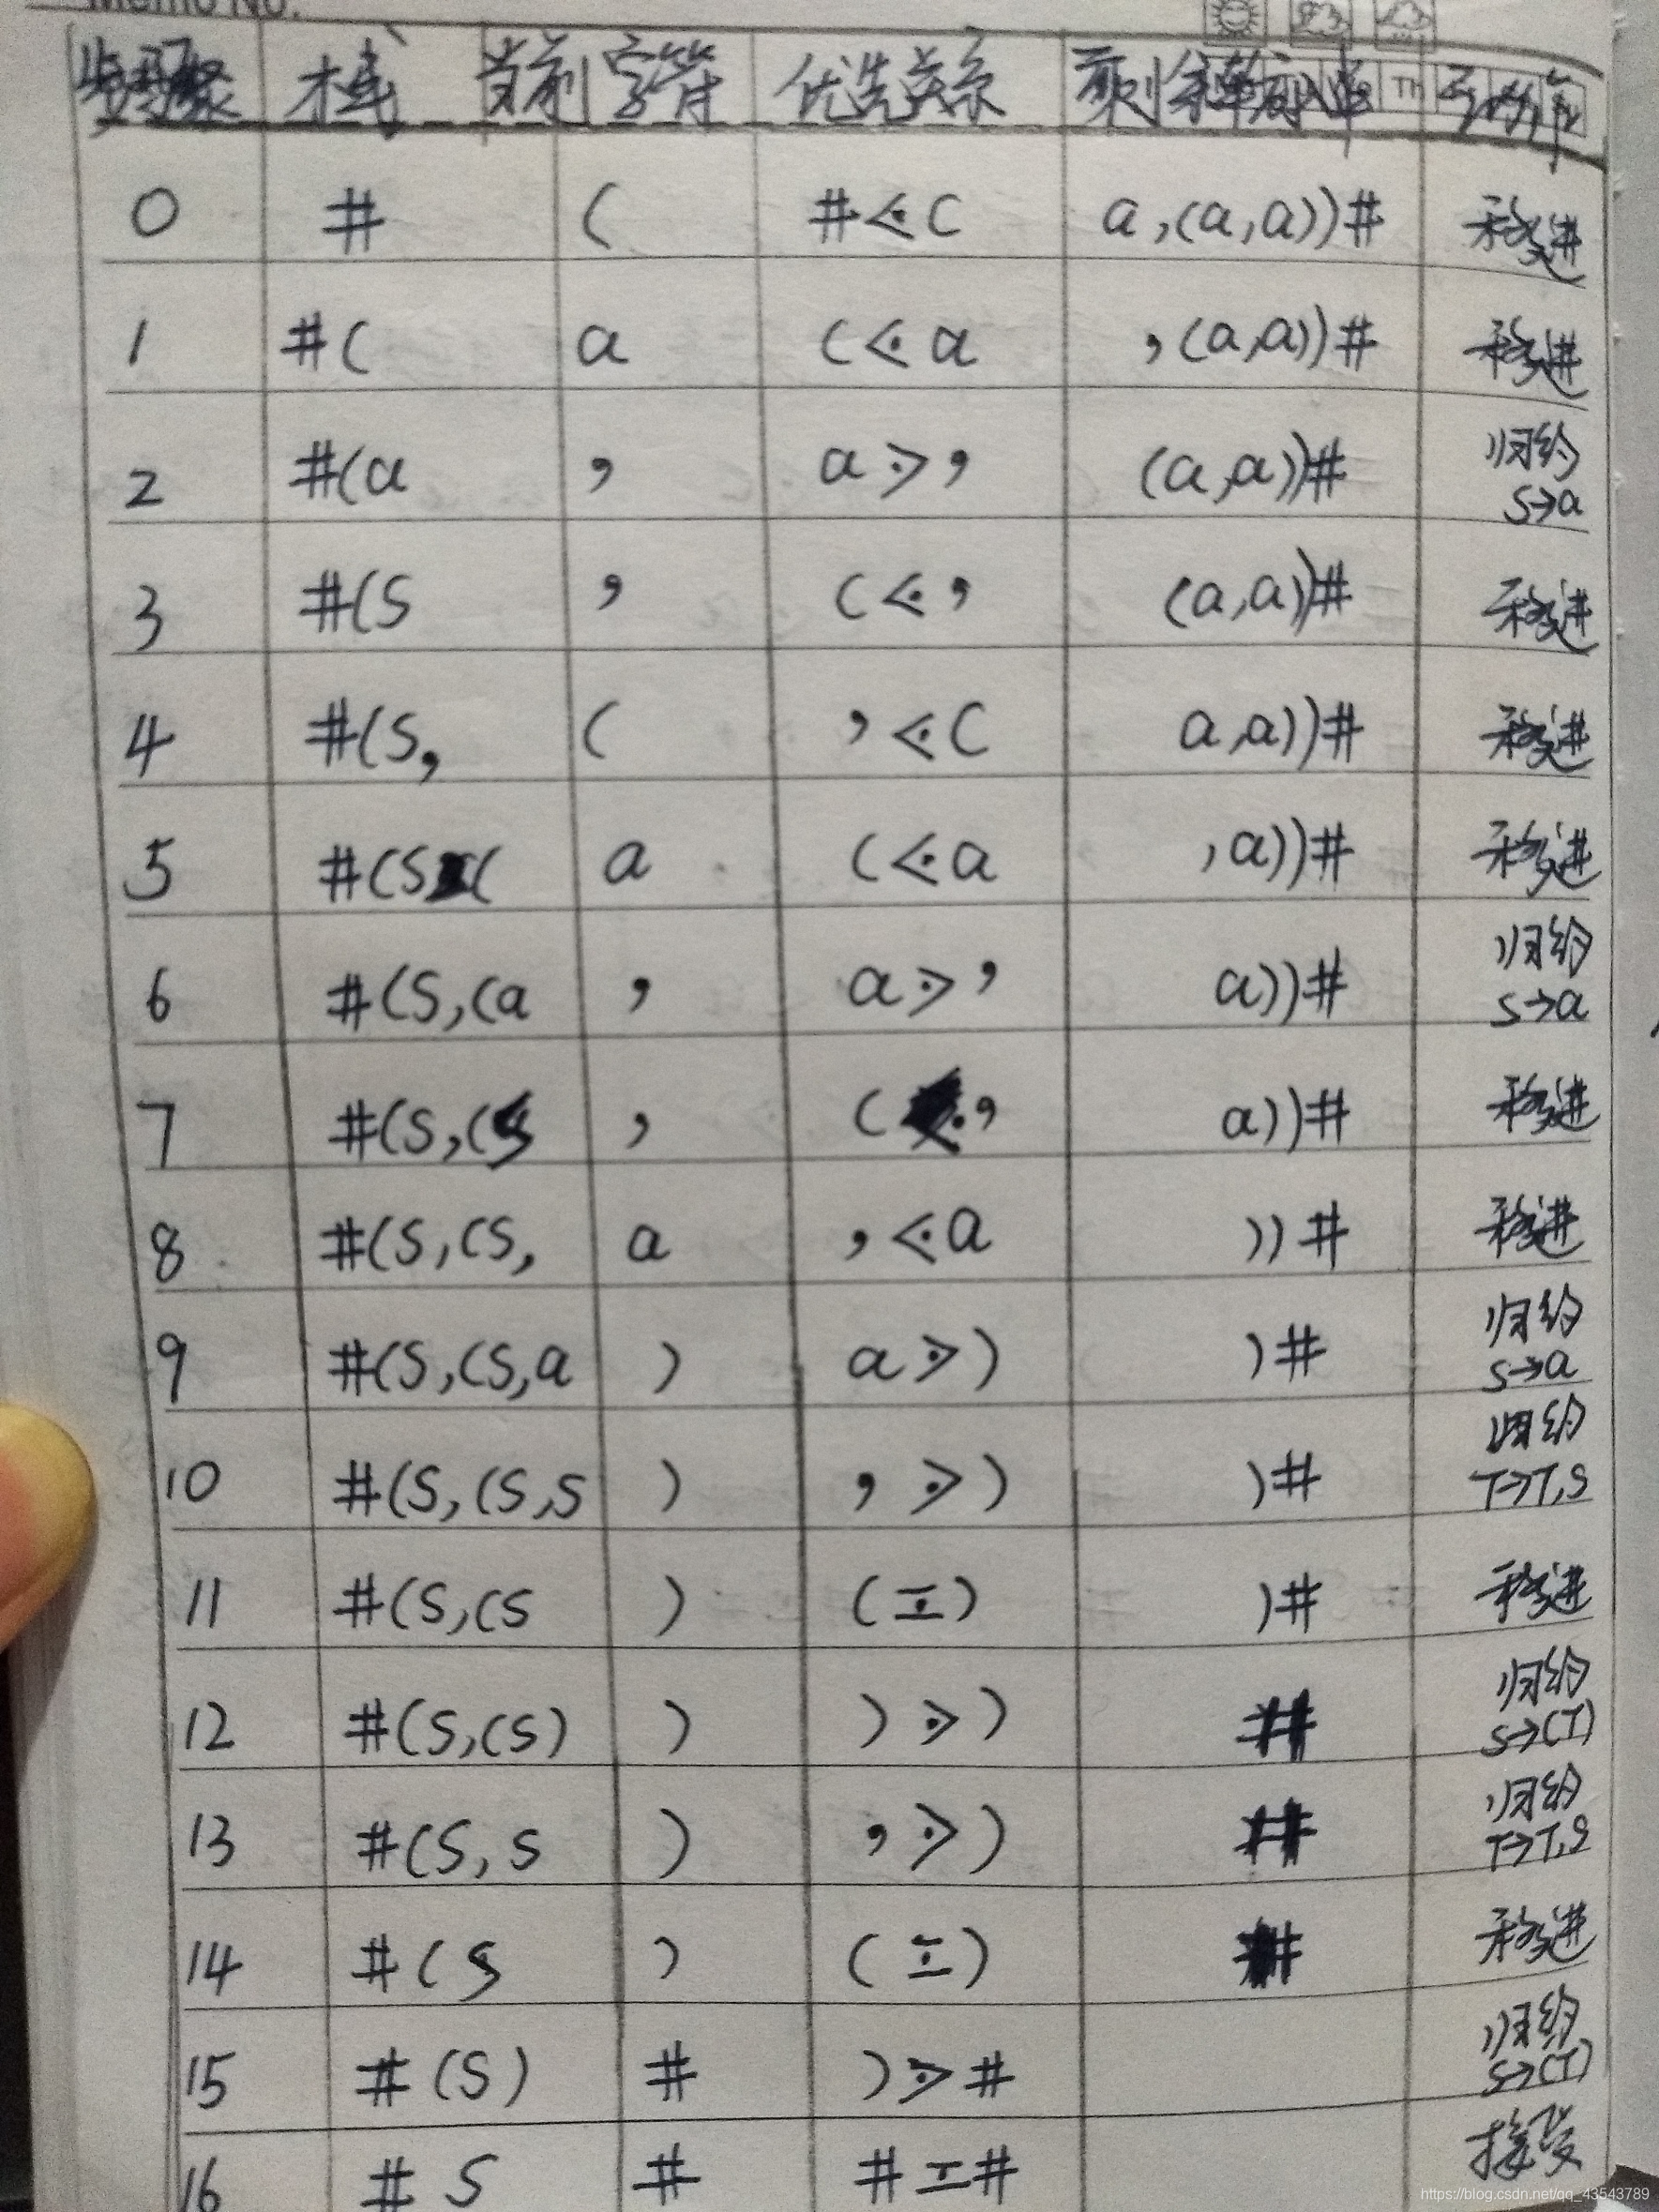 Memo No.
步骤 栈 当前字符 优先关系 剩余输入串 Th 动作
0 # ( #⋖( a,(a,a))# 移进
1 #( a (⋖a ,(a,a))# 移进
2 #(a , a⋗, (a,a))# 归约 S→a
3 #(S , (⋖, (a,a))# 移进
4 #(S, ( ,⋖( a,a))# 移进
5 #(S ( a (⋖a ,a))# 移进
6 #(S,(a , a⋗, a))# 归约 S→a
7 #(S,(S , ( , a))# 移进
8 #(S,(S, a ,⋖a ))# 移进
9 #(S,(S,a ) a⋗) )# 归约 S→a
10 #(S,(S,S ) ,⋗) )# 归约 T→T,S
11 #(S,(S ) (≐) )# 移进
12 #(S,(S) ) )⋗) # 归约 S→(T)
13 #(S,S ) ,⋗) # 归约 T→T,S
14 #(S ) (≐) # 移进
15 #(S) # )⋗# 归约 S→(T)
16 #S # #≐# 接受
https://blog.csdn.net/qq_43543789